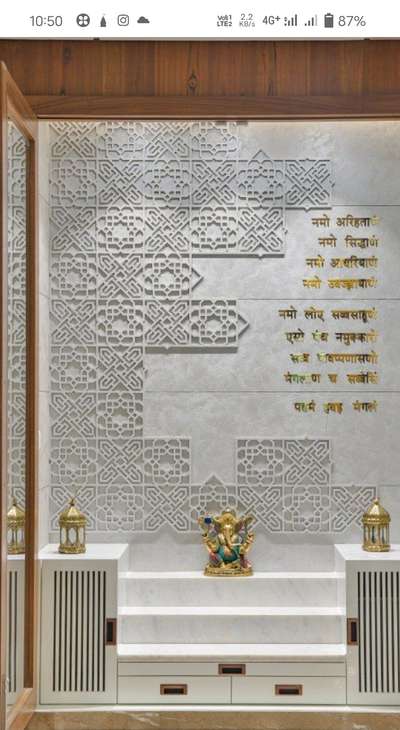 10:50
Vo1) LTE2 2.2 KB/s 4G+ 87%
नमो अरिहंताणं
नमो सिद्धाणं
नमो आयरियाणं
नमो उवज्झायाणं
नमो लोए सव्वसाहूणं
एसो पंच नमुक्कारो
सव्व पावप्पणासणो
मंगलाणं च सव्वेसिं
पढमं हवइ मंगलं